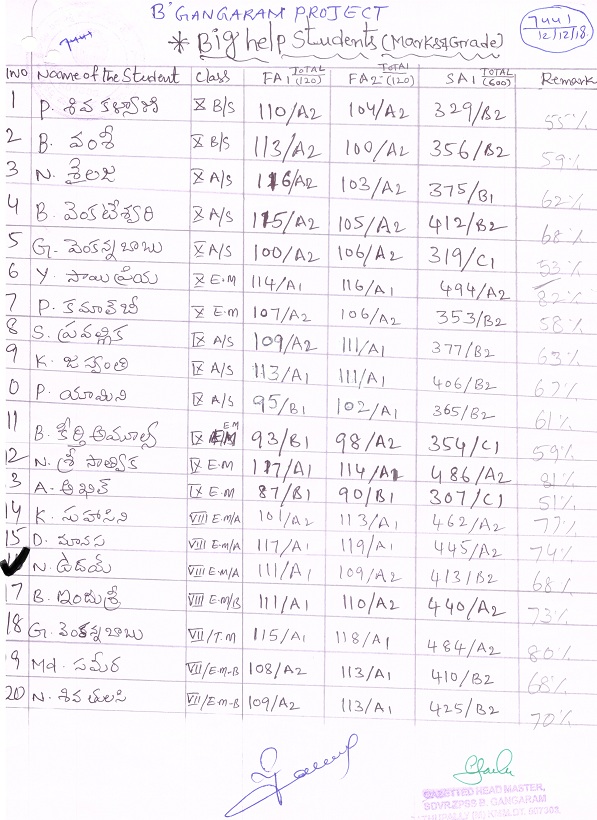 B' GANGARAM PROJECT
7441
7441
12/12/18
* Big help Students (Marks & Grade)
SlNO Name of the Student Class FA1 TOTAL (120) FA2 TOTAL (120) SA1 TOTAL (600) Remark
1 P. శివ కళ్యాణి X B/S 110/A2 104/A2 329/B2 55%
2 B. వంశీ X B/S 113/A2 100/A2 356/B2 59%
3 N. శైలజ X A/S 116/A2 103/A2 375/B1 62%
4 B. వెంకటేశ్వరి X A/S 115/A2 105/A2 412/B2 68%
5 G. వెంకన్నబాబు X A/S 100/A2 106/A2 319/C1 53%
6 Y. సాయి ప్రియ X E.M 114/A1 116/A1 494/A2 82%
7 P. కమాల్‌బీ X E.M 107/A2 106/A2 353/B2 58%
8 S. ప్రవల్లిక IX A/S 109/A2 111/A1 377/B2 63%
9 K. జస్వంతి IX A/S 113/A1 111/A1 406/B2 67%
0 P. యామిని IX A/S 95/B1 102/A1 365/B2 61%
11 B. కీర్తి అమూల్య IX EM 93/B1 98/A2 354/C1 59%
12 N. శ్రీ సాత్విక IX E.M 117/A1 114/A1 486/A2 81%
3 A. అఖిల్ IX E.M 87/B1 90/B1 307/C1 51%
14 K. సుహాసిని VIII E.M/A 101/A2 113/A1 462/A2 77%
15 D. మానస VIII E.M/A 117/A1 119/A1 445/A2 74%
N. ఉదయ్ VIII E.M/A 111/A1 109/A2 413/B2 68%
17 B. ఇందుశ్రీ VIII E.M/B 111/A1 110/A2 440/A2 73%
18 G. వెంకన్నబాబు VII/T.M 115/A1 118/A1 484/A2 80%
9 Md. సమీర VII/E.M-B 108/A2 113/A1 410/B2 68%
20 N. శివ తులసి VII/E.M-B 109/A2 113/A1 425/B2 70%
GAZETTED HEAD MASTER,
B. GANGARAM